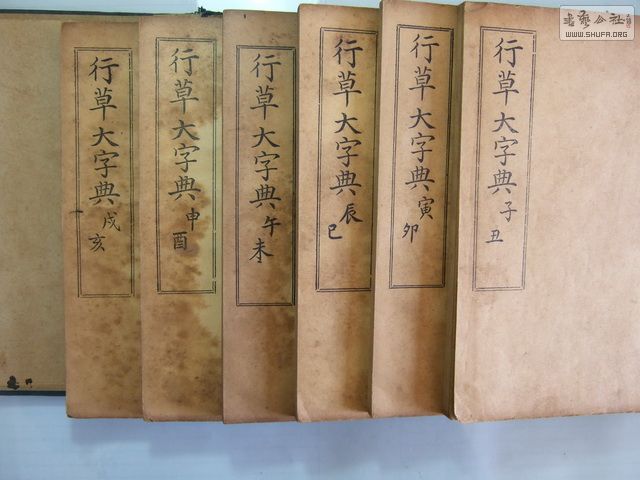 行草大字典子丑
行草大字典寅卯
行草大字典辰巳
行草大字典午未
行草大字典申酉
行草大字典戌亥
書藝公社
WWW.SHUFA.ORG